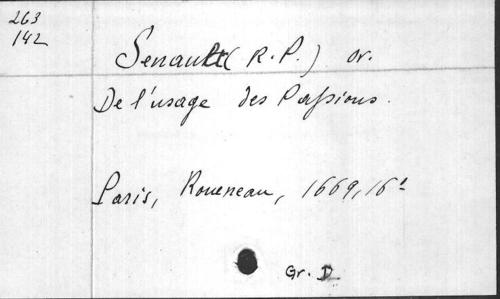 263
142
Senault (R.P.) or.
De l'usage des Passions.
Paris, Roueneau, 1669, 16¹
Gr. D